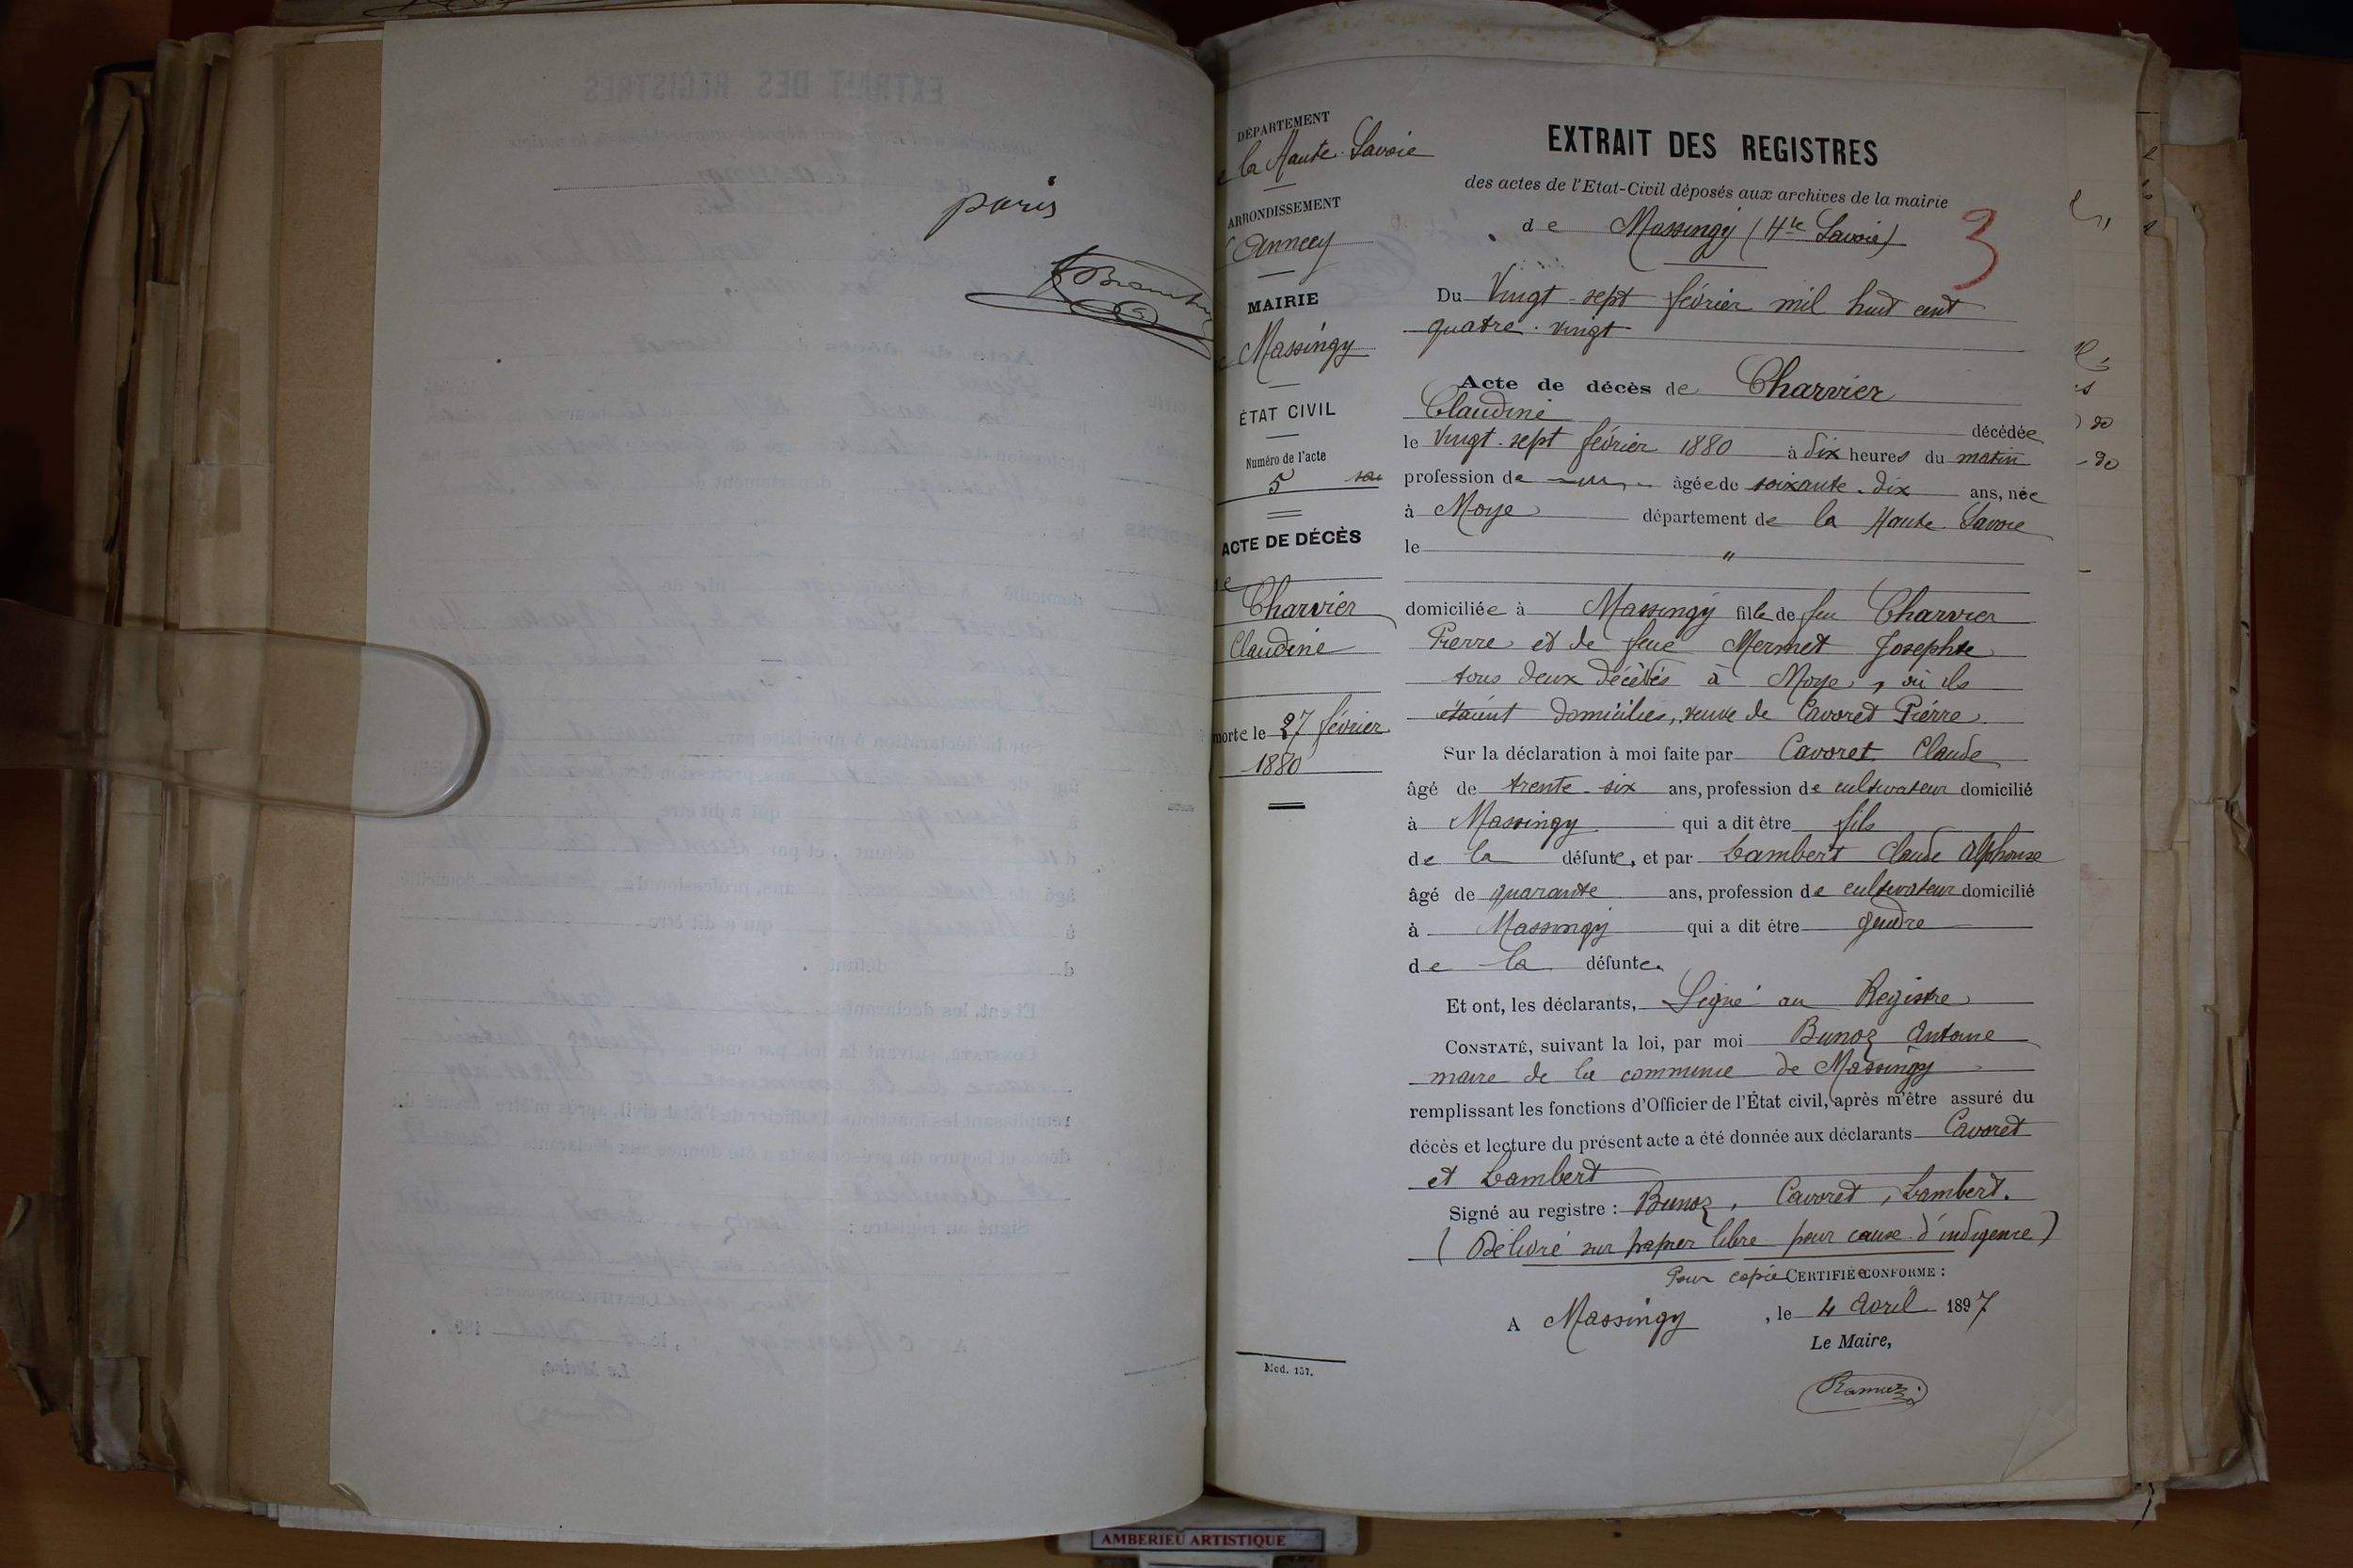 paris
DÉPARTEMENT
la Haute-Savoie
ARRONDISSEMENT
Annecy
MAIRIE
Massingy
ÉTAT CIVIL
Numéro de l'acte
5
ACTE DE DÉCÈS
de
Charvier
Claudine
morte le 27 février
1880
Mod. 157.
EXTRAIT DES REGISTRES
des actes de l'Etat-Civil déposés aux archives de la mairie
de Massingy (Hte Savoie)
3
Du Vingt-sept février mil huit cent
quatre-vingt
Acte de décès de Charvier
Claudine décédée
le Vingt-sept février 1880 à dix heures du matin
profession de âgée de soixante-dix ans, née
à Moye département de la Haute Savoie
le "
domiciliée à Massingy fille de feu Charvier
Pierre et de feue Mermet Josephte
tous deux décédés à Moye, où ils
étaient domiciliés, veuve de Cavoret Pierre
Sur la déclaration à moi faite par Cavoret Claude
âgé de trente-six ans, profession de cultivateur domicilié
à Massingy qui a dit être fils
de la défunte, et par Lambert Claude Alphonse
âgé de quarante ans, profession de cultivateur domicilié
à Massingy qui a dit être gendre
de la défunte.
Et ont, les déclarants, Signé au Registre
CONSTATÉ, suivant la loi, par moi Bunoz Antoine
maire de la commune de Massingy
remplissant les fonctions d'Officier de l'État civil, après m'être assuré du
décès et lecture du présent acte a été donnée aux déclarants Cavoret
et Lambert
Signé au registre : Bunoz, Cavoret, Lambert.
(Délivré sur papier libre pour cause d'indigence)
Pour copie CERTIFIÉe CONFORME :
A Massingy, le 4 Avril 1897
Le Maire,
AMBERIEU ARTISTIQUE